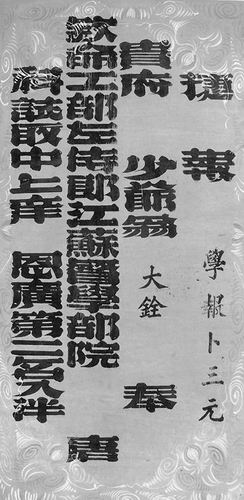 捷報 學報卜三元
貴府 少爺翁 大銓 奉
欽命工部左侍郎江蘇督學部院 唐
科試取中上庠 恩廣第三名入泮